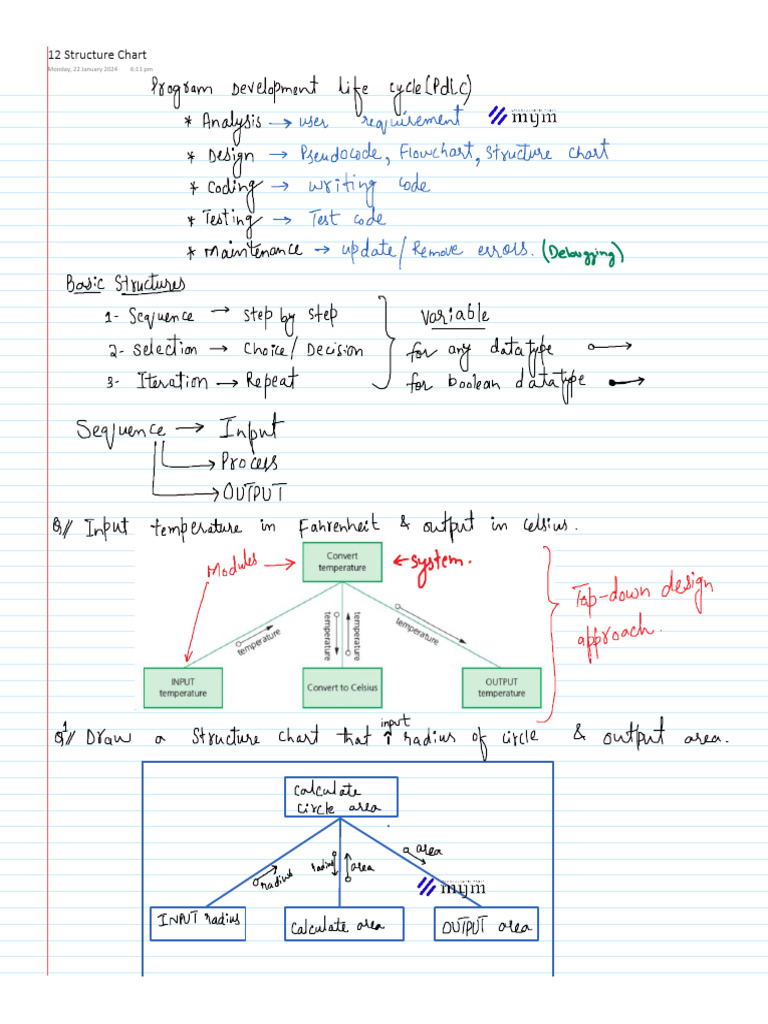 12 Structure Chart
Monday, 22 January 2024 6:11 pm
Program Development Life Cycle (PdLC)
* Analysis → user requirement
mym
* Design → Pseudocode, Flowchart, Structure chart
* Coding → writing code
* Testing → Test code
* Maintenance → update/Remove errors. (Debugging)
Basic Structures
1- Sequence → step by step
2- selection → Choice/Decision
3- Iteration → Repeat
Variable
for any datatype
for boolean datatype
Sequence → Input
→ Process
→ OUTPUT
Q// Input temperature in Fahrenheit & output in celsius.
Modules →
Convert
temperature
← System.
temperature
temperature
temperature
temperature
INPUT
temperature
Convert to Celsius
OUTPUT
temperature
Top-down design
approach.
Q1// Draw a Structure chart that input radius of circle & output area.
Calculate
circle area
radius
radius
area
area
mym
INPUT radius
Calculate area
OUTPUT area